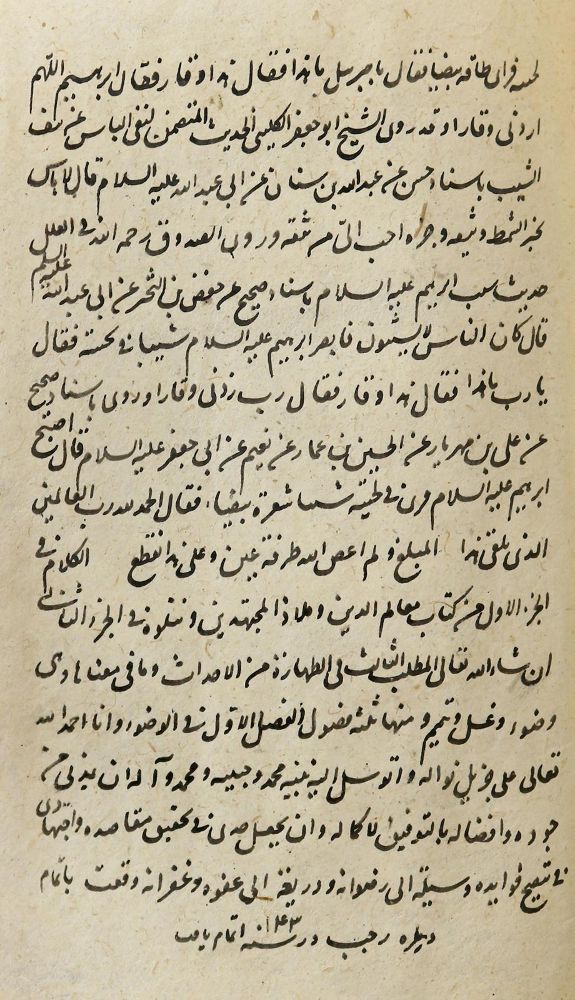 لحيته فراى طاقة بيضا فقال يا جبرئيل ما هذا فقال هذا وقار فقال ابرهيم اللهم
زدنى وقارا وقد روى الشيخ ابو جعفر الكلينى الحديث المتضمن لنفى الباس عن نتف
الشيب باسناد حسن عن عبدالله بن سنان عن ابى عبدالله عليه السلام قال لا باس
بجز الشمط ونتفه وجزه احب الىّ من نتفه وروى الصدوق رحمه الله فى العلل
حديث شيب ابرهيم عليه السلام باسناد صحيح عن حفص بن البخترى عن ابى عبدالله عليه السلم
قال كان الناس لا يشيبون فابصر ابرهيم عليه السلام شيبا فى لحيته فقال
يا رب ما هذا فقال هذا وقار فقال رب زدنى وقارا وروى باسناد صحيح
عن على بن مهزيار عن الحسين بن عمار عن نعيم عن ابى جعفر عليه السلام قال اصبح
ابرهيم عليه السلام فراى فى لحيته شيبا شعرة بيضاء فقال الحمد لله رب العالمين
الذى بلغنى هذا المبلغ ولم اعص الله طرفة عين وعلى هذا انقطع الكلام فى
الجزء الاول من كتاب معالم الدين وملاذ المجتهدين ونتلوه فى الجزء الثانى
ان شاء الله تعالى المطلب الثالث فى الطهارة من الاحداث وما فى معناها وهى
وضوء وغسل وتيمم ومنها ثلثة فصول الفصل الاول فى الوضوء وانا احمد الله
تعالى على جزيل نواله واتوسل اليه بنبيه محمد وحبيبه ومحمد وآله ان يمدنى من
جوده وافضاله بالتوفيق لاكماله وان يجعل جدى فى تحقيق مقاصده واجتهادى
فى تنقيح فوايده وسيلة الى رضوانه وذريعة الى عفوه وغفرانه وقعت باتمام
رجب در سنه ١٢٤٣ اتمام يافت